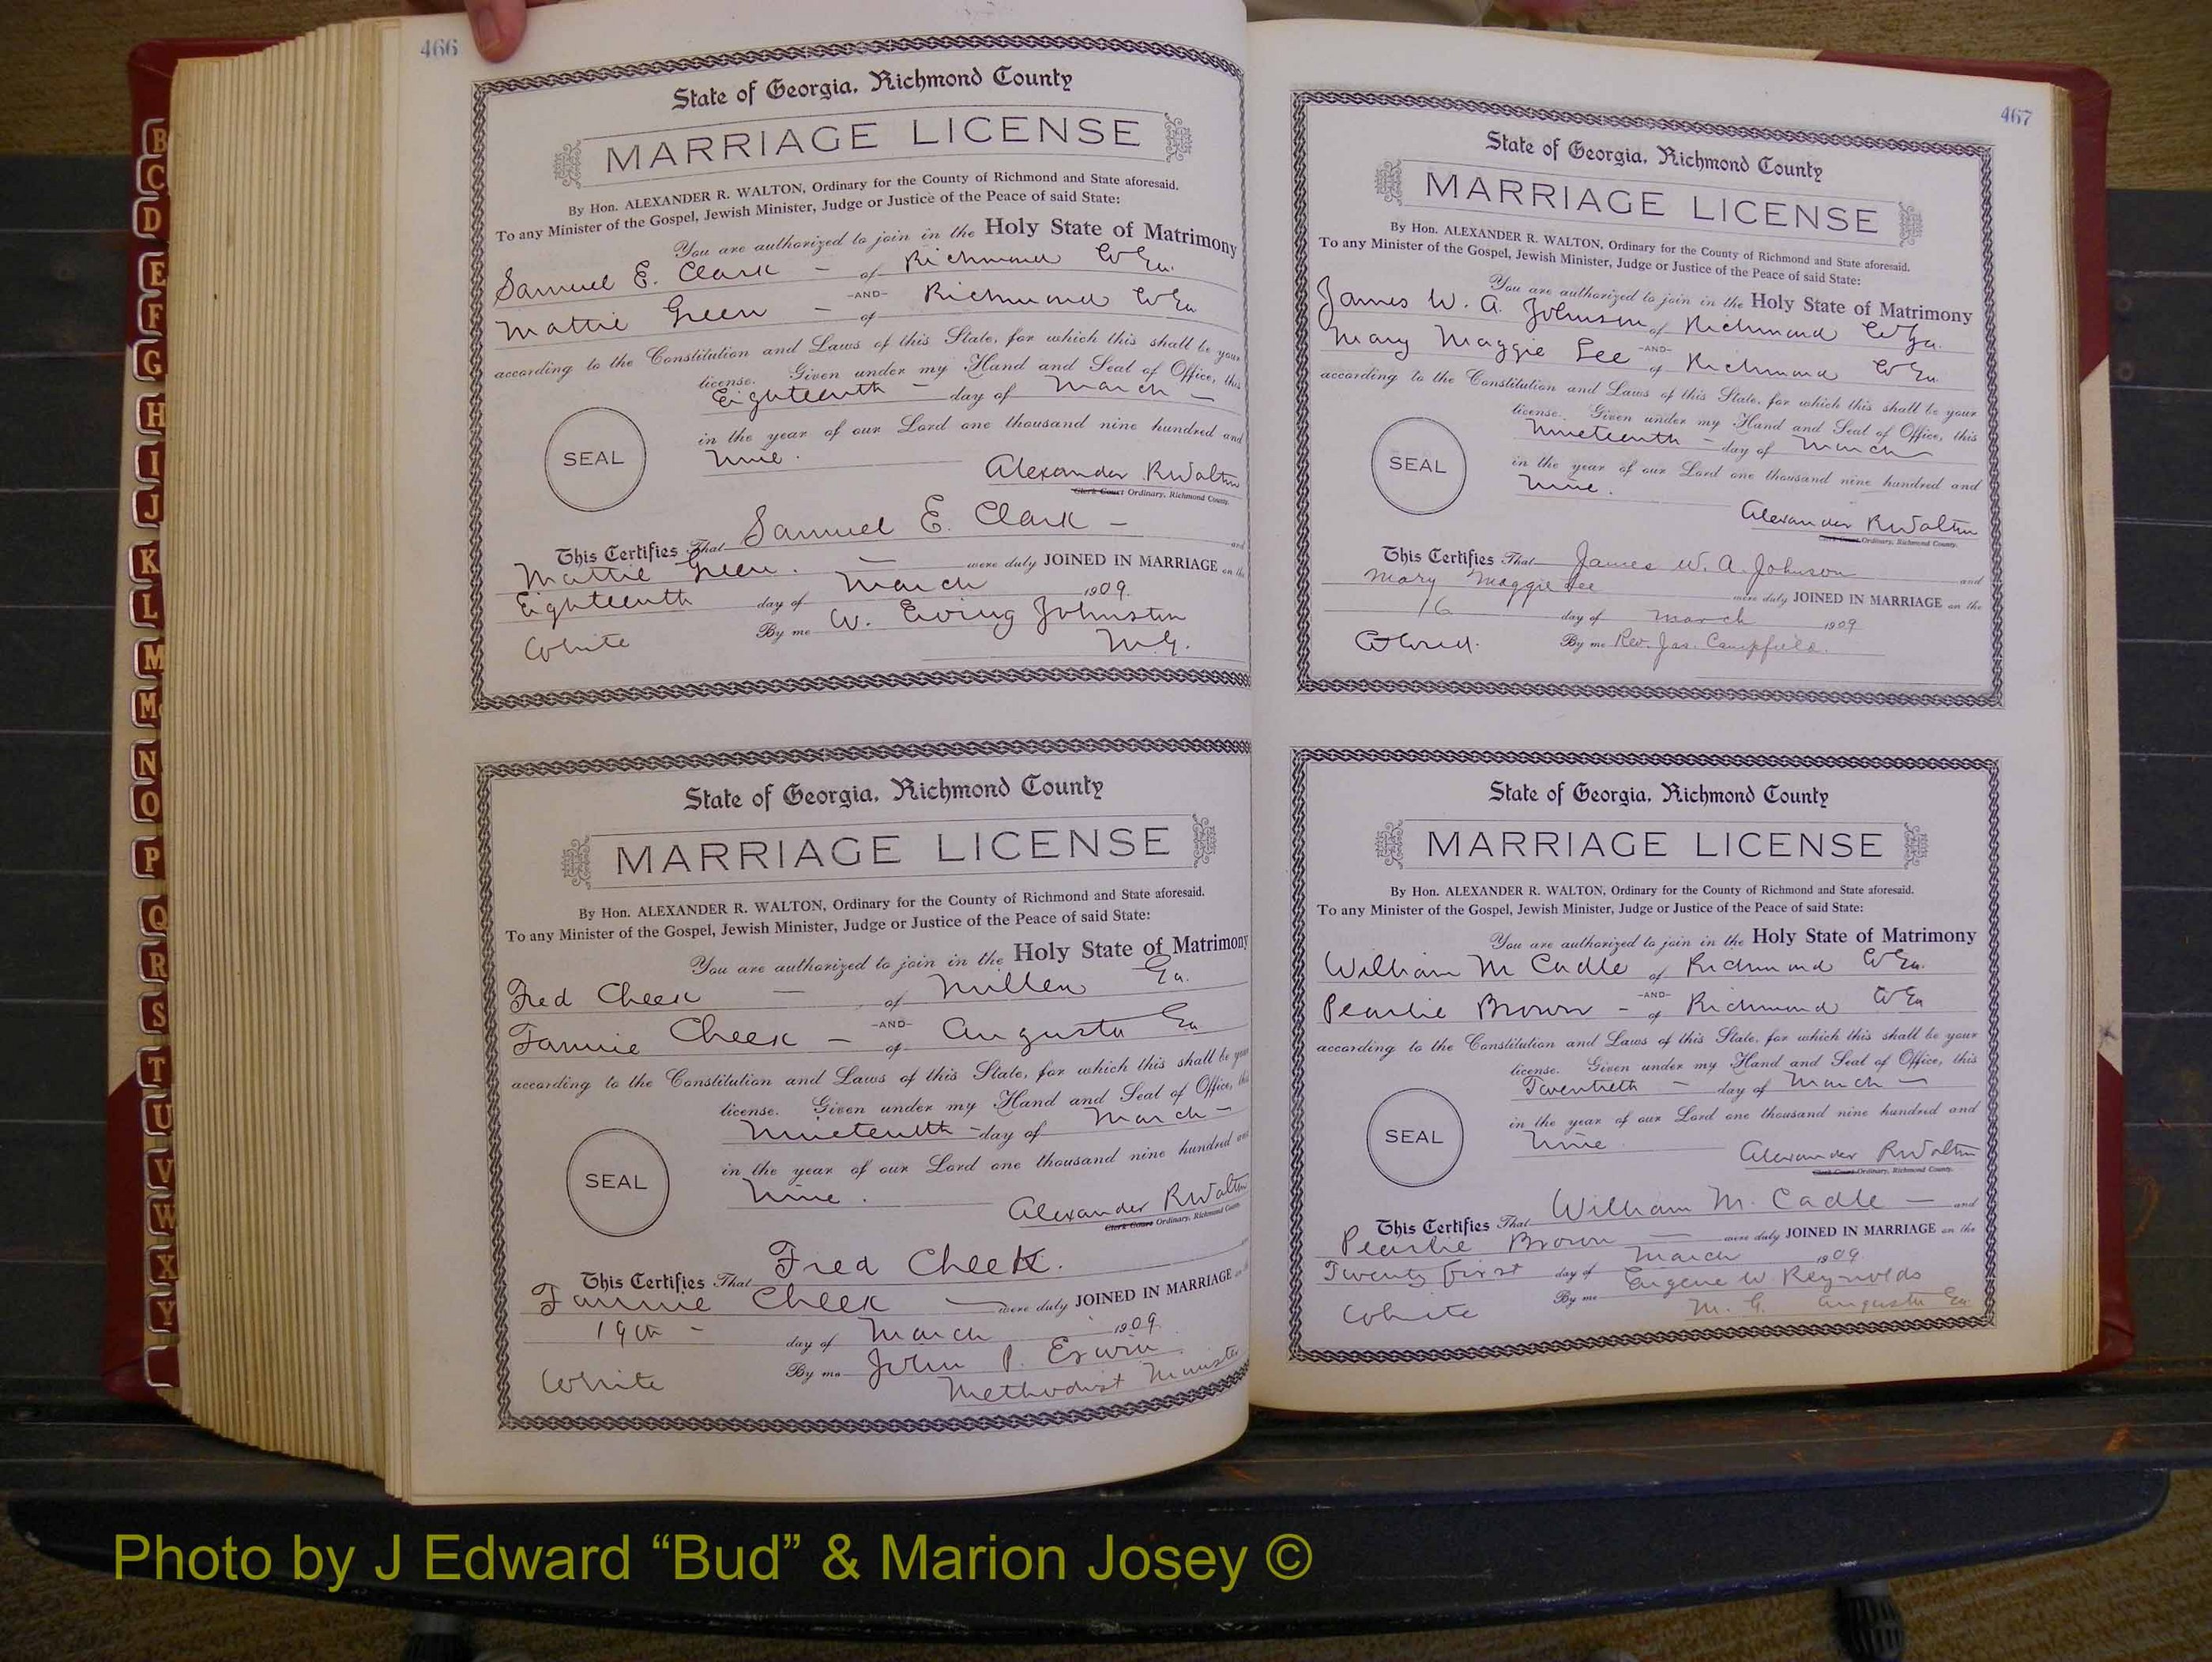 466
State of Georgia, Richmond County
MARRIAGE LICENSE
By Hon. ALEXANDER R. WALTON, Ordinary for the County of Richmond and State aforesaid.
To any Minister of the Gospel, Jewish Minister, Judge or Justice of the Peace of said State:
You are authorized to join in the Holy State of Matrimony
Samuel E. Clark - of Richmond Co Ga.
-AND-
Mattie Green - of Richmond Co Ga
according to the Constitution and Laws of this State, for which this shall be your
license. Given under my Hand and Seal of Office, this
Eighteenth - day of March -
in the year of our Lord one thousand nine hundred and
SEAL
nine.
Alexander R Walton
Clerk Court Ordinary, Richmond County.
This Certifies That Samuel E. Clark - and
Mattie Green. - were duly JOINED IN MARRIAGE on the
Eighteenth day of March 1909.
By me W. Ewing Johnston
White
M.G.
State of Georgia, Richmond County
MARRIAGE LICENSE
By Hon. ALEXANDER R. WALTON, Ordinary for the County of Richmond and State aforesaid.
To any Minister of the Gospel, Jewish Minister, Judge or Justice of the Peace of said State:
You are authorized to join in the Holy State of Matrimony
Fred Cheek - of Millen Ga.
-AND-
Fannie Cheek - of Augusta Ga
according to the Constitution and Laws of this State, for which this shall be your
license. Given under my Hand and Seal of Office, this
Nineteenth - day of March -
in the year of our Lord one thousand nine hundred and
SEAL
Nine.
Alexander R Walton
Clerk Court Ordinary, Richmond County.
This Certifies That Fred Cheek.
Fannie Cheek - were duly JOINED IN MARRIAGE on the
19th - day of March 1909.
By me John P. Erwin
White
Methodist Minister
467
State of Georgia, Richmond County
MARRIAGE LICENSE
By Hon. ALEXANDER R. WALTON, Ordinary for the County of Richmond and State aforesaid.
To any Minister of the Gospel, Jewish Minister, Judge or Justice of the Peace of said State:
You are authorized to join in the Holy State of Matrimony
James W. A. Johnson of Richmond Co Ga.
-AND-
Mary Maggie Lee of Richmond Co Ga.
according to the Constitution and Laws of this State, for which this shall be your
license. Given under my Hand and Seal of Office, this
Nineteenth - day of March
in the year of our Lord one thousand nine hundred and
SEAL
nine.
Alexander R Walton
Clerk Court Ordinary, Richmond County.
This Certifies That James W. A. Johnson and
Mary Maggie Lee were duly JOINED IN MARRIAGE on the
16 day of March 1909
Colored. By me Rev. Jas. Campfield.
State of Georgia, Richmond County
MARRIAGE LICENSE
By Hon. ALEXANDER R. WALTON, Ordinary for the County of Richmond and State aforesaid.
To any Minister of the Gospel, Jewish Minister, Judge or Justice of the Peace of said State:
You are authorized to join in the Holy State of Matrimony
William M Cadle of Richmond Co Ga.
-AND-
Pearlie Brown - of Richmond Co Ga
according to the Constitution and Laws of this State, for which this shall be your
license. Given under my Hand and Seal of Office, this
Twentieth - day of March -
in the year of our Lord one thousand nine hundred and
SEAL
Nine
Alexander R Walton
Clerk Court Ordinary, Richmond County.
This Certifies That William M. Cadle - and
Pearlie Brown - were duly JOINED IN MARRIAGE on the
Twenty first day of March 1909.
By me Eugene W. Reynolds
White
M. G. Augusta Ga
B
C
D
E
F
G
H
I
J
K
L
M
Mc
N
O
P
Q
R
S
T
U
V
W
X
Y
Photo by J Edward “Bud” & Marion Josey ©